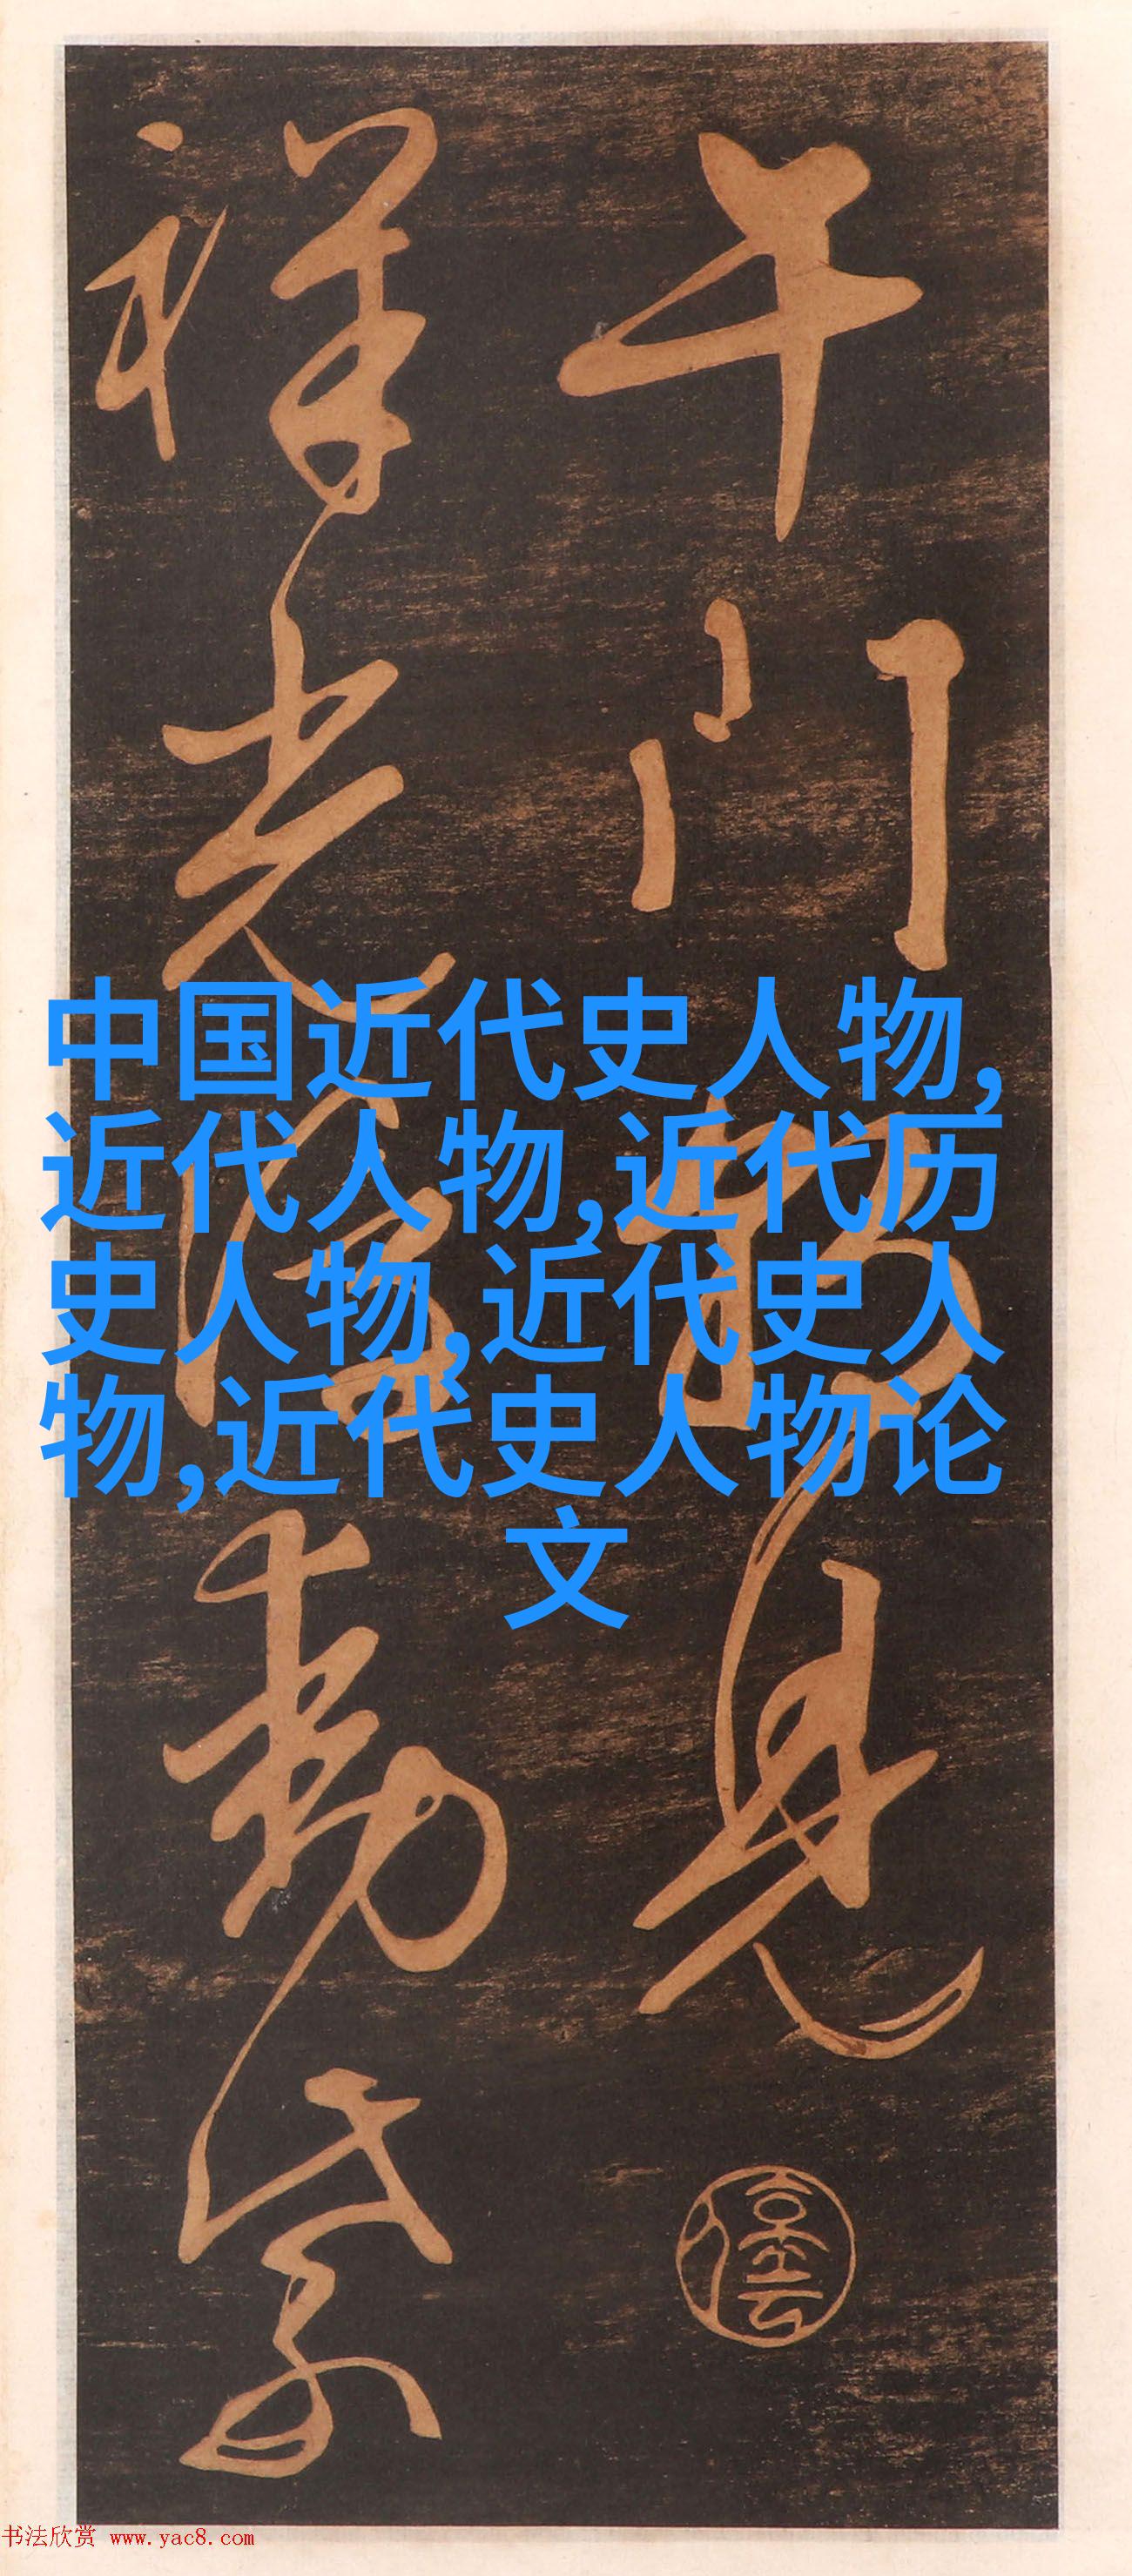 午门朝见
祥光浮动紫
中国近代史人物,
近代人物,近代历
史人物,近代史人
物,近代史人物论
文
书法欣赏 www.yac8.com